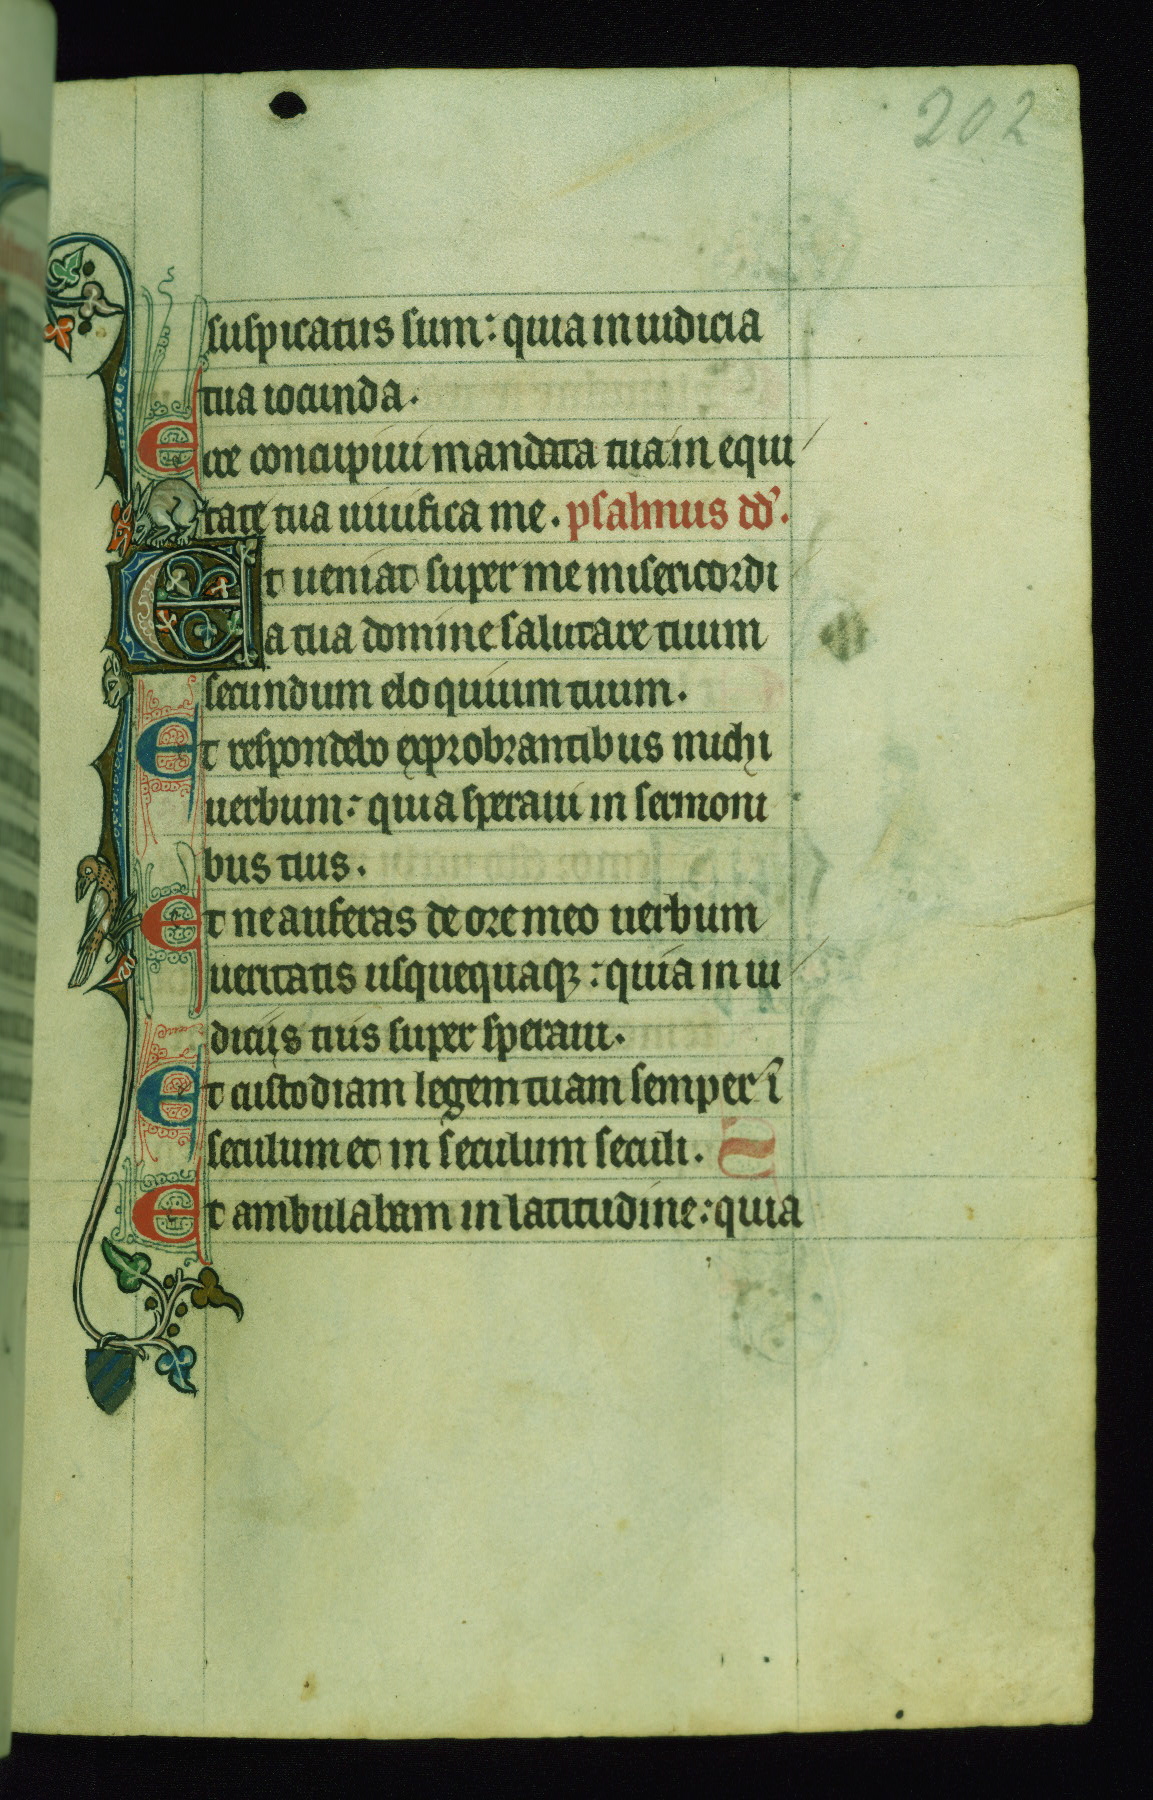 202
suspicatus sum: quia iudicia
tua iocunda.
Ecce concupiui mandata tua in equi
tate tua uiuifica me. psalmus dd.
Et ueniat super me misericordi
a tua domine salutare tuum
secundum eloquium tuum.
Et respondebo exprobrantibus michi
uerbum: quia speraui in sermoni
bus tuis.
Et ne auferas de ore meo uerbum
ueritatis usquequaqz: quia in iu
diciis tuis super speraui.
Et custodiam legem tuam semper ī
seculum et in seculum seculi.
Et ambulabam in latitudine: quia